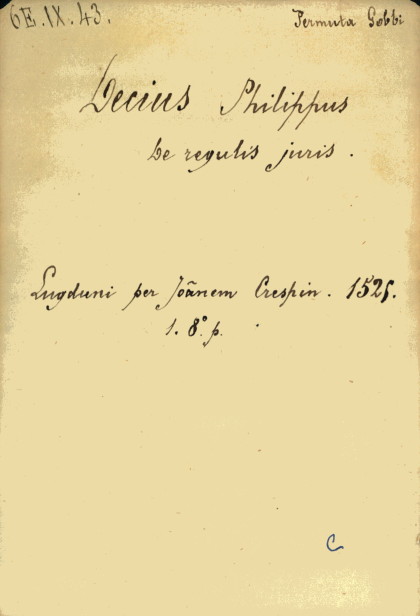 6E.IX.43.
Permuta Gobbi
Decius Philippus
De regulis juris.
Lugduni per Joãnem Crespin. 1525.
1. 8° p.
C